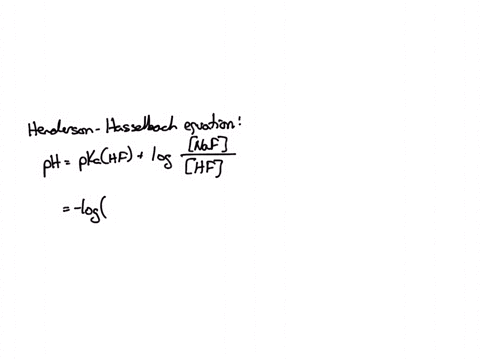 Henderson-Hasselbach equation:
pH = pKa(HF) + log [NaF]/[HF]
= -log(